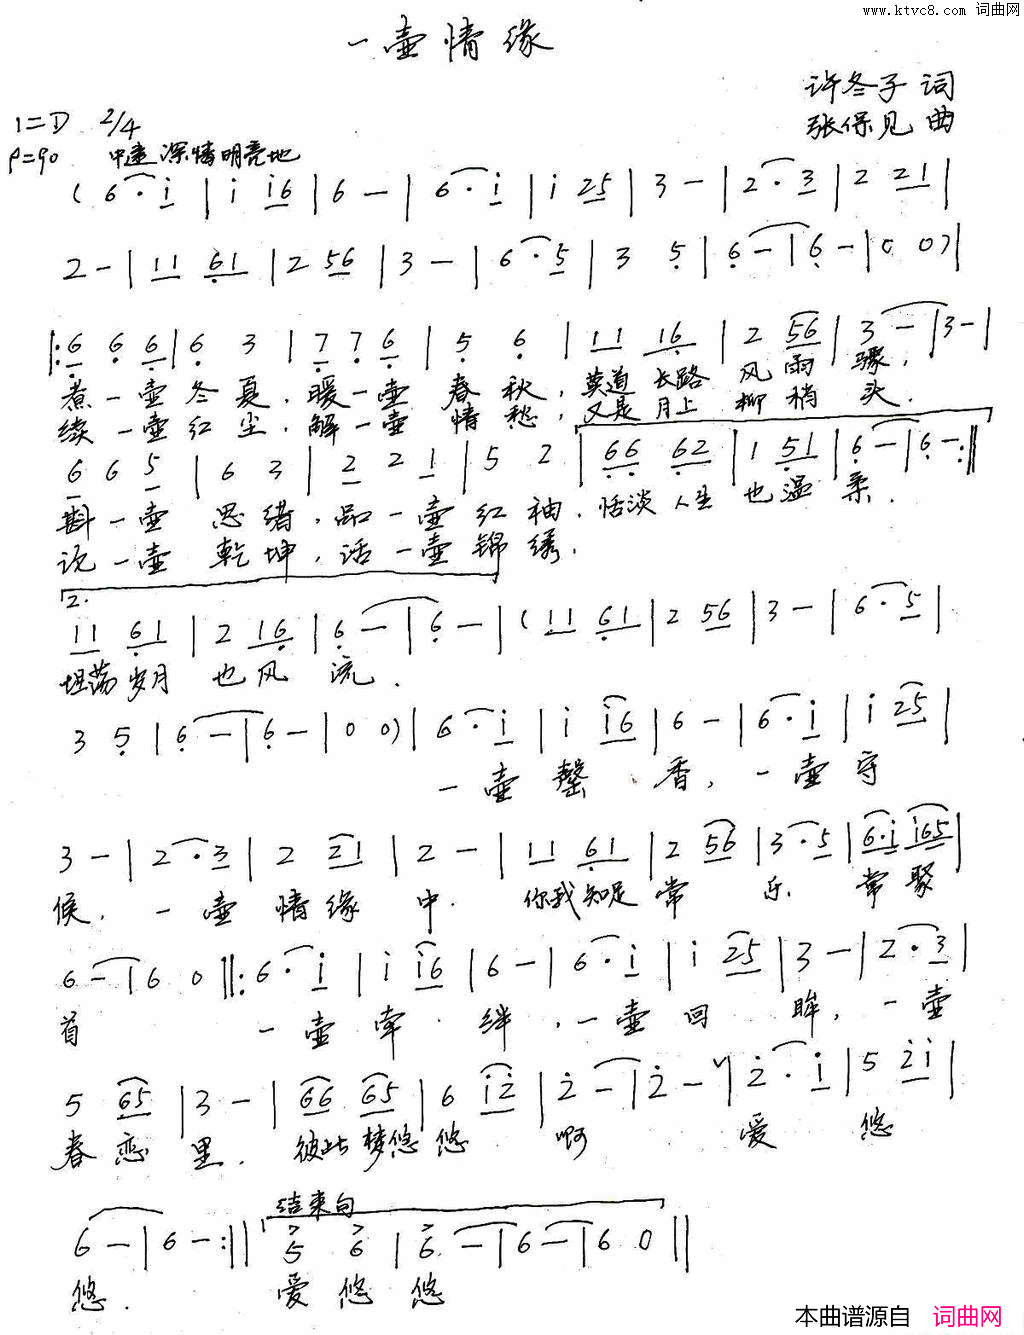 www.ktvc8.com 词曲网
一壶情缘
许冬子 词
1=D 2/4
张保见 曲
♩=90 中速 深情明亮地
( 6 · i | i i6 | 6 - | 6 · i | i 25 | 3 - | 2 · 3 | 2 21 |
2 - | 11 61 | 2 56 | 3 - | 6 · 5 | 3 5 | 6 - | 6 - | 0 0 ) |
|: 6 6 6 | 6 3 | 7 7 6 | 5 6 | 11 16 | 2 56 | 3 - | 3 - |
煮一壶冬夏，暖一壶春秋，莫道长路风雨骤，
续一壶红尘，解一壶情愁，又是月上柳梢头。
6 6 5 | 6 3 | 2 2 1 | 5 2 | 66 62 | 1 51 | 6 - | 6 - :||
斟一壶思绪，品一壶红袖，恬淡人生也温柔。
沅一壶乾坤，话一壶锦绣，
2.
11 61 | 2 16 | 6 - | 6 - | ( 11 61 | 2 56 | 3 - | 6 · 5 |
坦荡岁月也风流。
3 5 | 6 - | 6 - | 0 0 ) | 6 · i | i i6 | 6 - | 6 · i | i 25 |
一壶馨香，一壶守
3 - | 2 · 3 | 2 21 | 2 - | 11 61 | 2 56 | 3 · 5 | 6·i i65 |
候，一壶情缘中．你我知足常乐 常聚
6 - | 6 0 ||: 6 · i | i i6 | 6 - | 6 · i | i 25 | 3 - | 2 · 3 |
首 一壶牵绊，一壶回眸，一壶
5 65 | 3 - | 66 65 | 6 i2 | 2 - | 2 - | 2 · i | 5 2i |
春恋里．彼此梦悠悠 啊 爱悠
结束句
6 - | 6 - :|| 5 6 | 6 - | 6 - | 6 0 ||
悠． 爱悠悠
本曲谱源自 词曲网